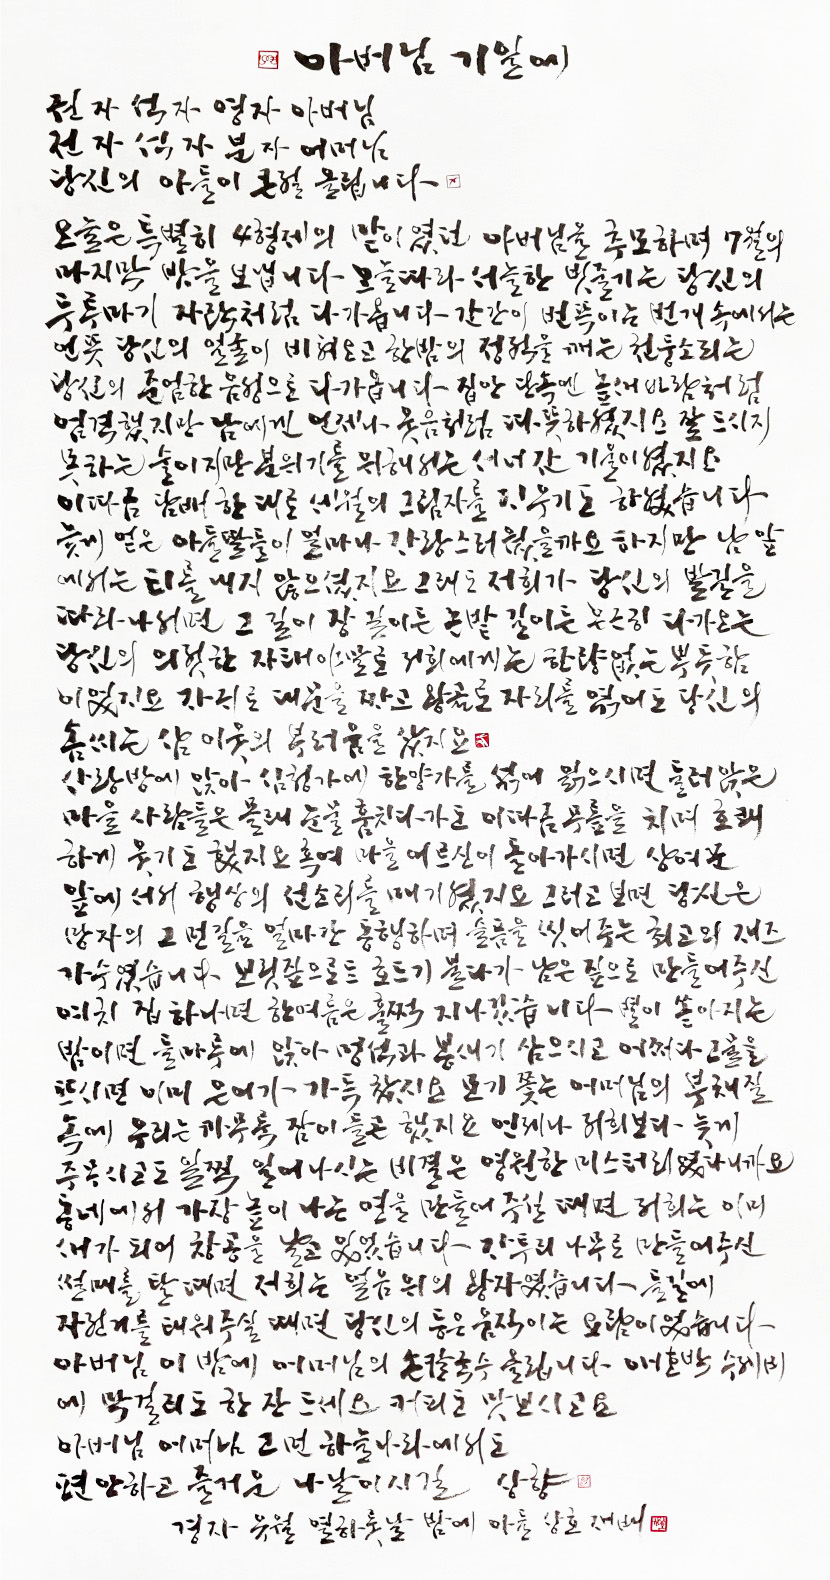 아버님 기일에
전 자 석자 영자 아버님
전 자 섭 자 분 자 어머님
당신의 아들이 큰절 올립니다
오늘은 특별히 4형제의 맏이였던 아버님을 추모하며 7월의
마지막 밤을 보냅니다 오늘따라 서늘한 빗줄기는 당신의
두루마기 자락처럼 다가옵니다 간간이 번뜩이는 번개 속에서는
언뜻 당신의 얼굴이 비쳐오고 한밤의 정적을 깨는 천둥소리는
당신의 준엄한 음성으로 다가옵니다 집안 단속엔 높새바람처럼
엄격했지만 남에겐 언제나 웃음처럼 따뜻하였지요 잘 드시지
못하는 술이지만 분위기를 위해서는 서너 잔 기울이셨지요
이따금 담배 한 대로 세월의 그림자를 피우기도 하였습니다
늦게 얻은 아들딸들이 얼마나 자랑스러웠을까요 하지만 남 앞
에서는 티를 내지 않으셨지요 그래도 저희가 당신의 발길을
따라나서면 그 길이 장 길이든 논밭 길이든 은근히 다가오는
당신의 의젓한 자태야말로 저희에게는 한량없는 뿌듯함
이였지요 자리로 대문을 짜고 왕골로 자리를 엮어도 당신의
솜씨는 삼 이웃의 부러움을 샀지요
사랑방에 앉아 심청가에 한양가를 섞어 읽으시면 둘러앉은
마을 사람들은 몰래 눈물 훔치다가도 이따금 무릎을 치며 호쾌
하게 웃기도 했지요 혹여 마을 어르신이 돌아가시면 상여꾼
앞에 서서 행상의 선소리를 매기셨지요 그러고 보면 당신은
망자의 그 먼길을 얼마간 동행하며 슬픔을 씻어주는 최고의 재즈
가수였습니다 보릿짚으로는 호드기 불다가 남은 짚으로 만들어주신
여치 집 하나면 한여름은 훌쩍 지나갔습니다 별이 쏟아지는
밤이면 들마루에 앉아 멍석과 봉새기 삼으시고 어쩌다 그물을
뜨시면 이미 은어가 가득 찼지요 모기 쫓는 어머님의 부채질
속에 우리는 까무룩 잠이 들곤 했지요 언제나 저희보다 늦게
주무시고도 일찍 일어나시는 비결은 영원한 미스터리였다니까요
동네에서 가장 높이 나는 연을 만들어 주실 때면 저희는 이미
새가 되어 창공을 날고 있었습니다 자투리 나무로 만들어주신
썰매를 탈 때면 저희는 얼음 위의 왕자였습니다 들길에
자전거를 태워주실 때면 당신의 등은 움직이는 요람이었습니다
아버님 이 밤에 어머님의 손칼국수 올립니다 애호박 수제비
에 막걸리도 한 잔 드세요 커피도 맛보시고요
아버님 어머님 그 먼 하늘나라에서도
편안하고 즐거운 나날이시길 상향
경자 유월 열하룻날 밤에 아들 상호 재배